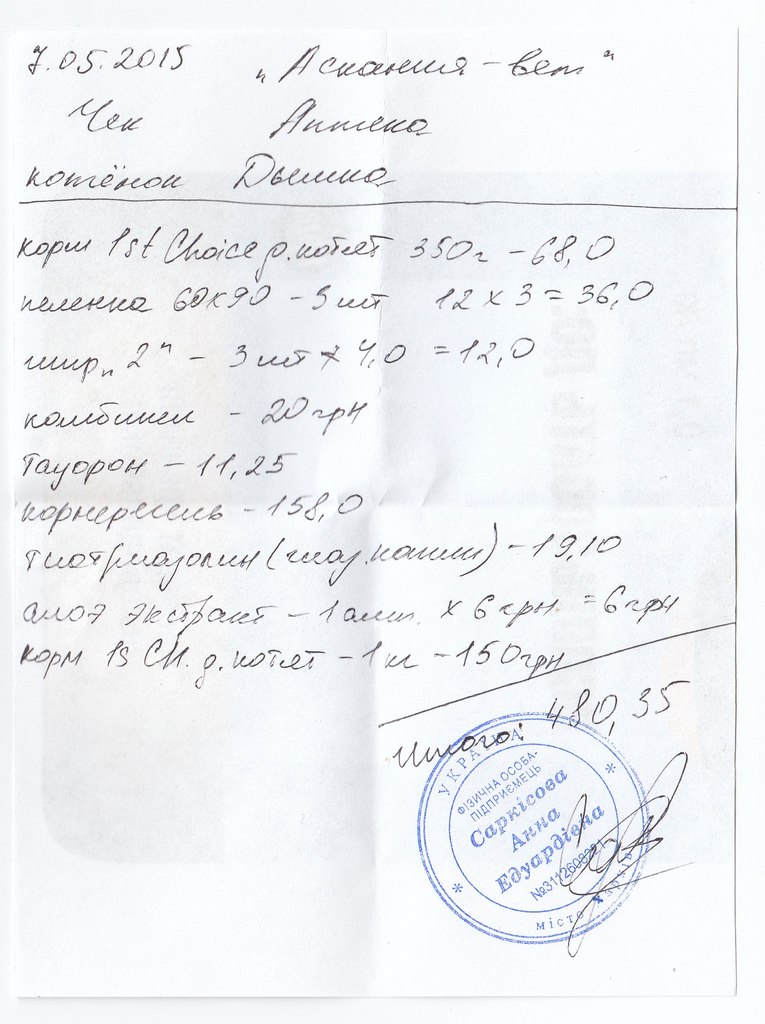 7.05.2015 "Аскания-вет"
Чек Аптека
котёнок Дымка
корм 1st Choice д.котят 350г - 68,0
пеленка 60х90 - 3 шт 12 х 3 = 36,0
шпр „2" - 3 шт х 4,0 = 12,0
комбинил - 20 грн
Тауфон - 11,25
корнерегель - 158,0
тиотриазолин (глаз.капли) - 19,10
алоэ экстракт - 1 амп. х 6 грн. = 6 грн
корм 1s Ch. д.котят - 1 кг - 150 грн
Итого: 480,35
УКРАЇНА
ФІЗИЧНА ОСОБА-
ПІДПРИЄМЕЦЬ
Саркісова
Анна
Едуардівна
місто Харків